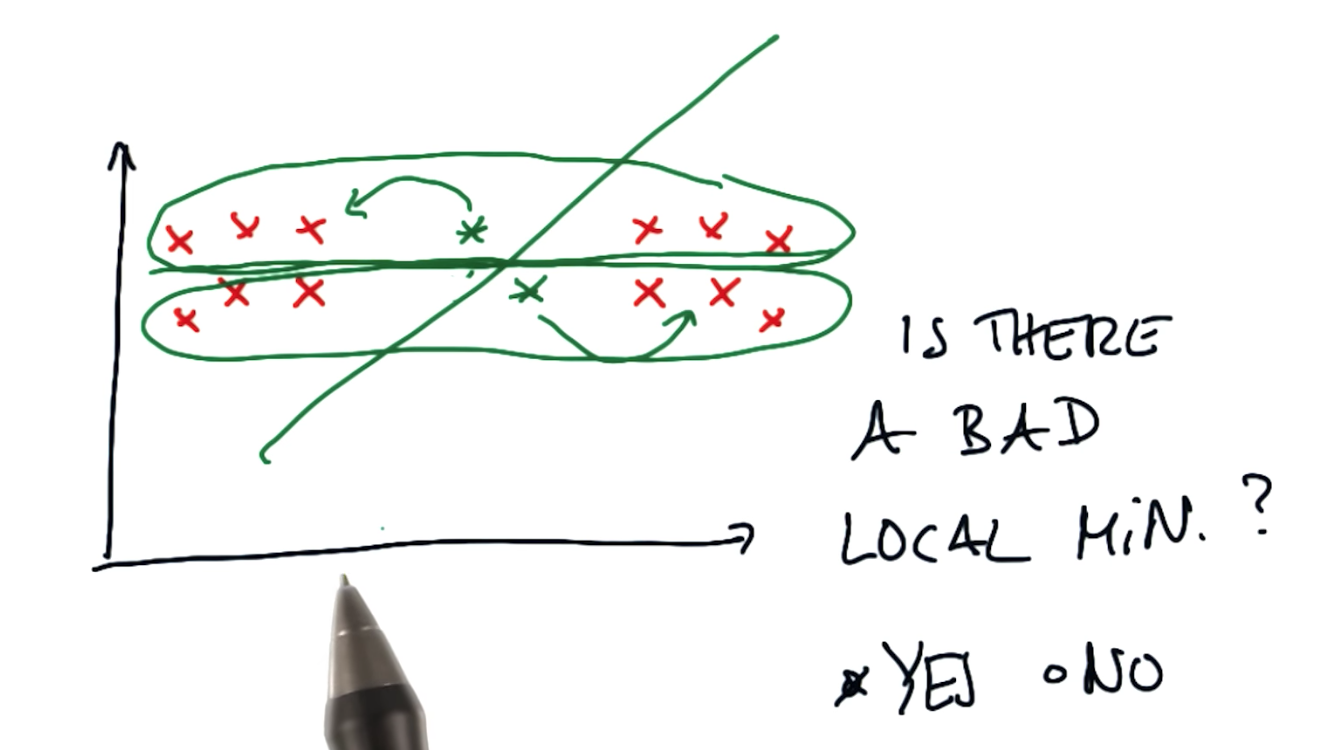 IS THERE
A BAD
LOCAL MIN. ?
YES NO